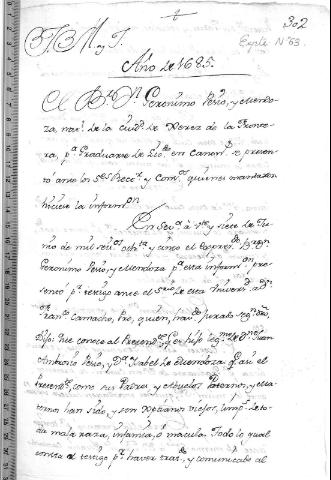 302
Expte. Nº 63
J. M. y J.
Año de 1685.
El Br. Dn. Geronimo Perio, y Mendo-
za, natl. de la ciud. de Xerez de la Fronte-
ra, pa. Graduarse de Lizdo. en Canons. se presen-
tó ante los Sres. Rector y Cons. quienes mandaron
hiciese la informon.
En Sevª. à vte. y siete de Ju-
nio de mil seiso. ochta. y cinco el expredo. Bn.
Geronimo Perio, y Mendoza pa. esta informon. pre-
sentó pr. testigo ante el Srio. de esta Univerd. a Dn.
Franco. Camacho, Pre, quien, havdo. jurado
Dijo: que conoce al Pretendte. q. es hijo legmo. de Dn. Juan
Ambrosio Perio, y Da. Isabel de Mendoza q. asi el
Pretendte. como sus Padres, y Abuelos Paternos, y Ma-
ternos han sido, y son xptianos viejos, limps. de to-
da mala raza, infamia, ò macula. Todo lo qual
consta al testigo pr. haver tratdo. y comunicado al